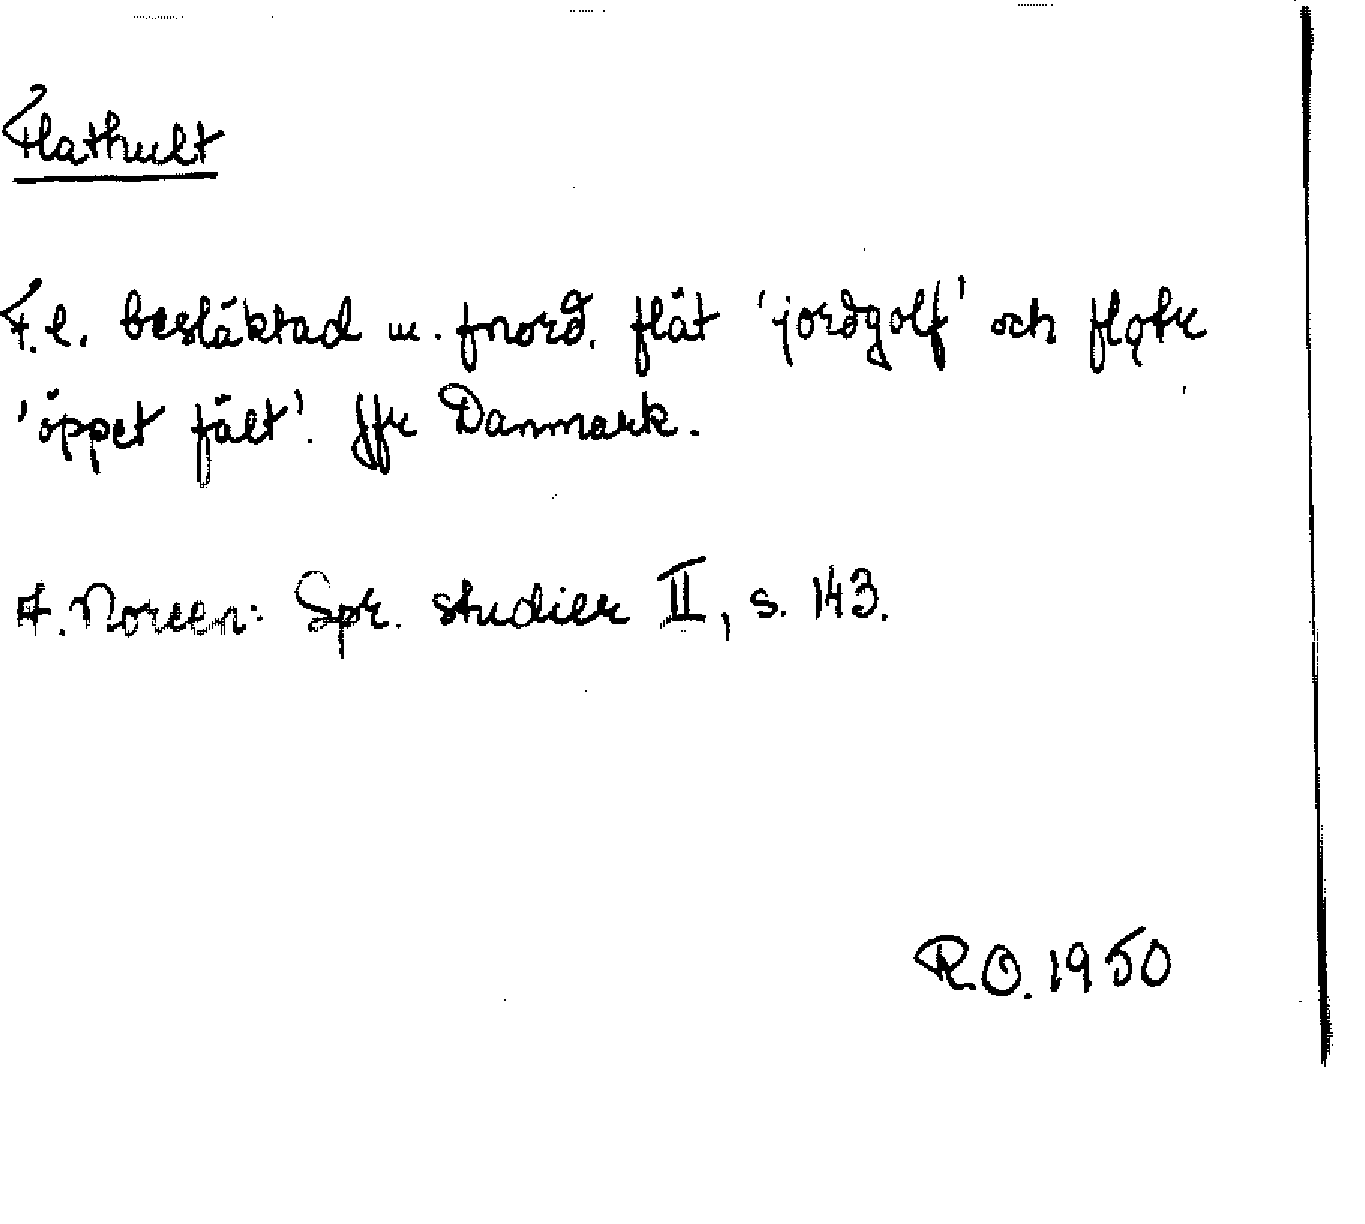 Flathult
F.l. besläktad m. fnord. flät 'jordgolf' och flǫtr
'öppet fält'. Jfr Danmark.
A. Noreen: Spr. studier II, s. 143.
R.O. 1950